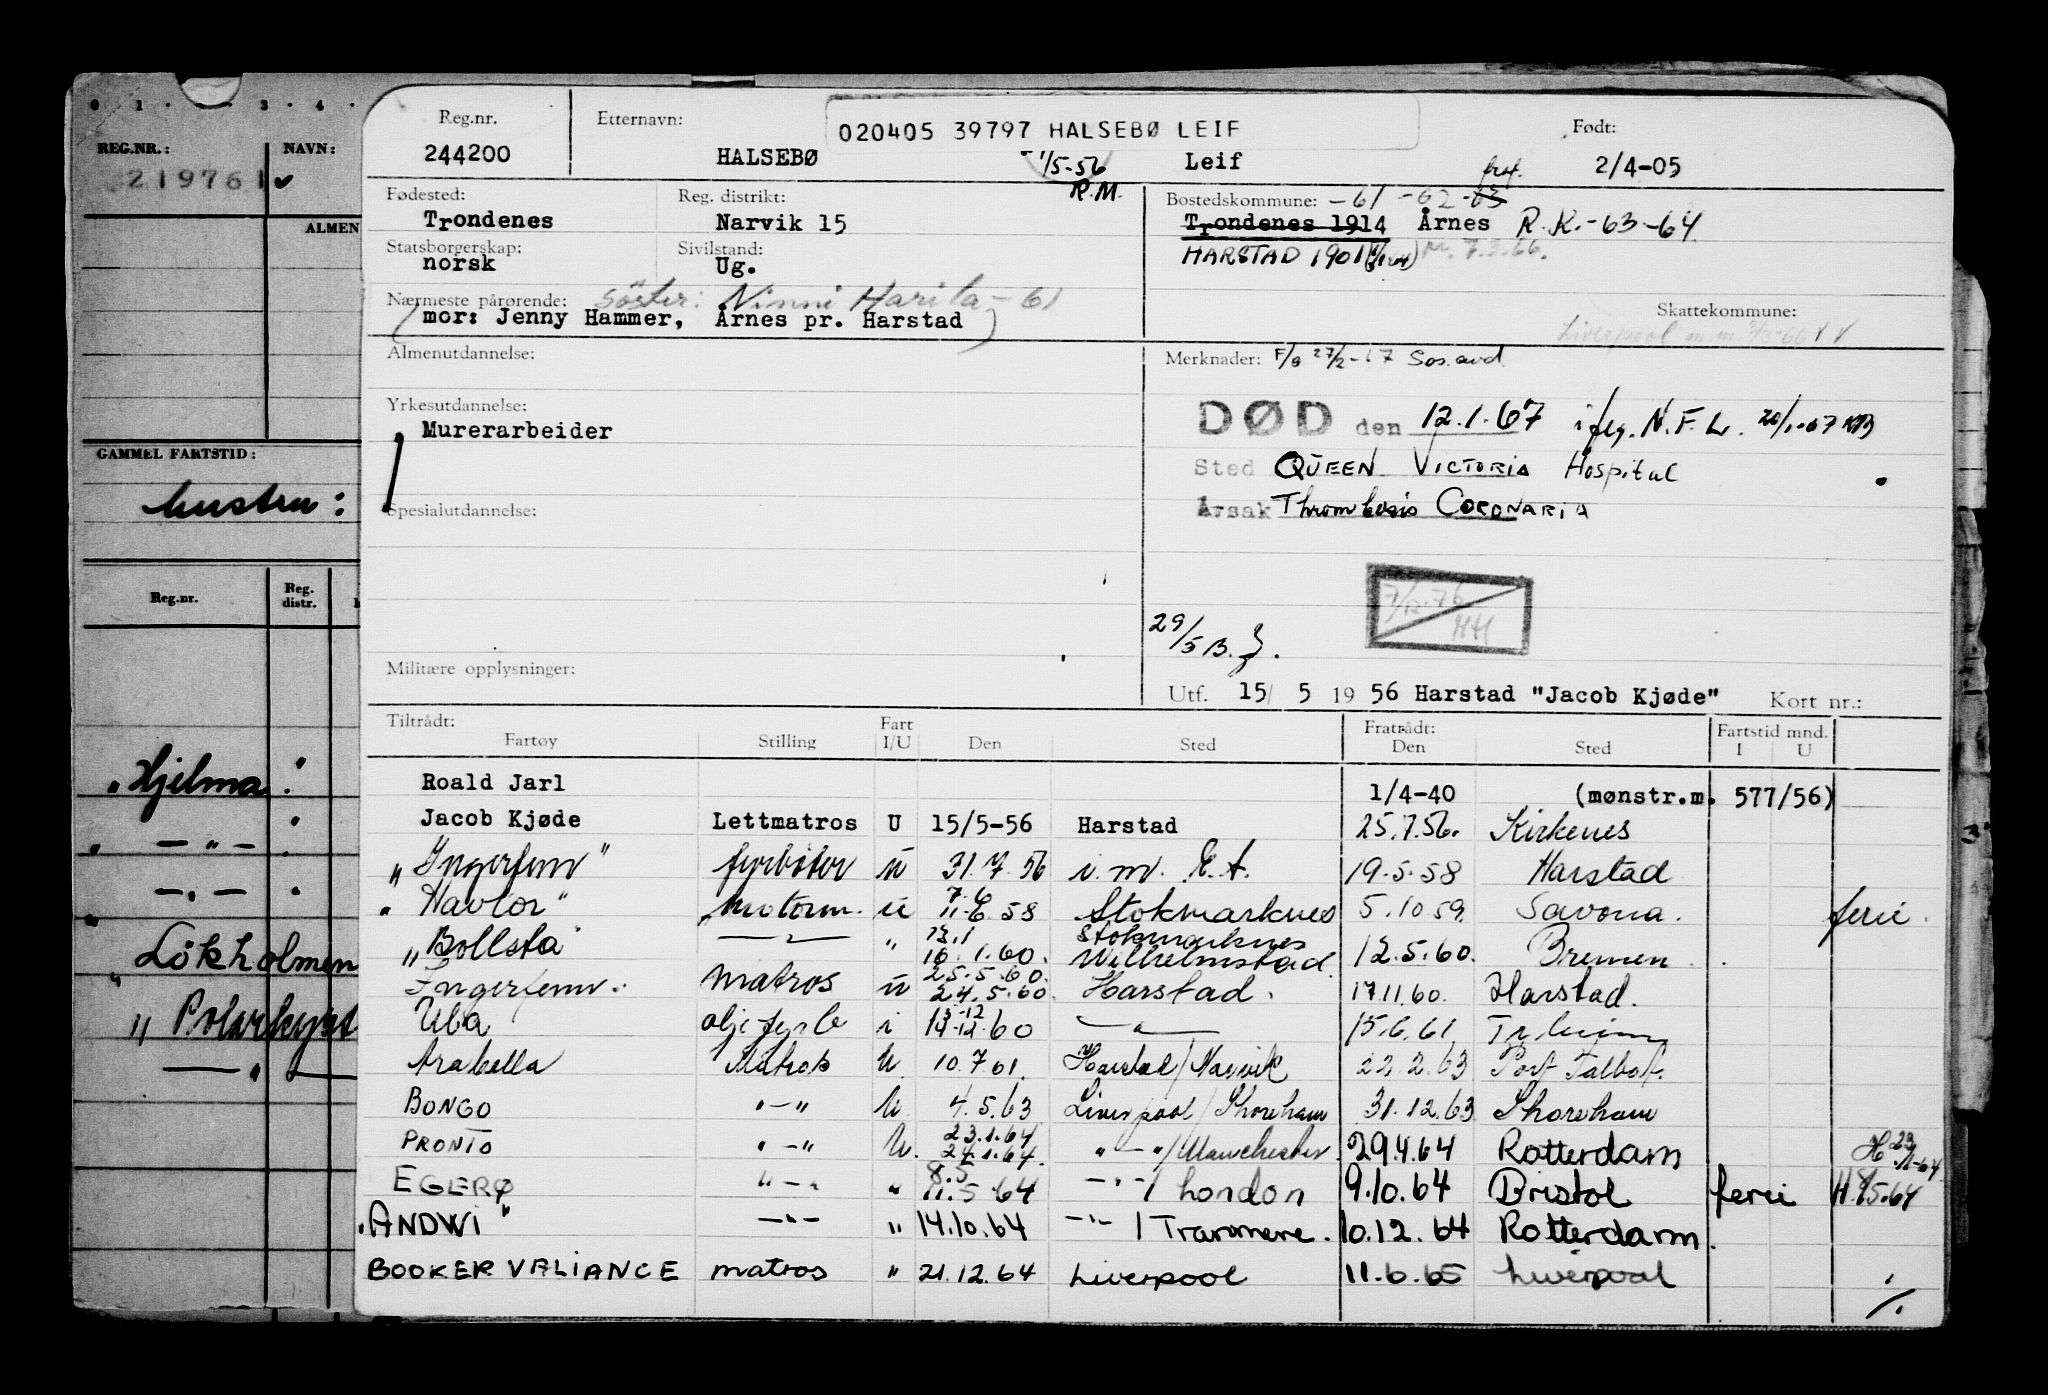 0 1 · 3 · 4 ·
REG.NR.: NAVN:
219761
ALMEN
GAMMEL FARTSTID:
hustru:
Reg.nr. Reg. distr.
"Hjelma"
— " —
— " —
Lökholmen
" Polarkyst
— " —
Reg.nr. Etternavn: 020405 39797 HALSEBØ LEIF Født:
244200 HALSEBØ 1/5-56 R.M. Leif 2/4-05
Fødested: Reg. distrikt: Bostedskommune: -61 -62 -63
Trondenes Narvik 15 Trondenes 1914 Årnes R.K.-63-64
Statsborgerskap: Sivilstand: HARSTAD 1901
norsk Ug.
Nærmeste pårørende: Söster: Ninni Harila-61 Skattekommune:
(mor: Jenny Hammer, Årnes pr. Harstad) Liverpool
Almenutdannelse: Merknader: F/9 27/2-67 Sos.avd
Yrkesutdannelse: DØD den 12.1.67 ifлg. N.F.L. 20/1-67
Murerarbeider
Sted QUEEN VICTORIA Hospital
Spesialutdannelse: Årsak Thrombosis CORONARIA
7/12.76 HH
29/5 B.
Militære opplysninger:
Utf. 15/ 5 19 56 Harstad "Jacob Kjøde" Kort nr.:
Tiltrådt: Fart Fratrådt: Fartstid mnd.
Fartøy Stilling I/U Den Sted Den Sted I U
Roald Jarl 1/4-40 (mønstr.m. 577/56)
Jacob Kjøde Lettmatros U 15/5-56 Harstad 25.7.56. Kirkenes
"Ingerfem" fyrbøter U 31.7.56 i.m. E.A. 19.5.58 Harstad
"Havlor" motorm. U 7.6 11.6.58 Stokmarknes 5.10.59. Savona. ferie.
"Bollsta" — " — " 13.1 16.1.60. Stokmarknes Wilhelmstad. 12.5.60. Bremen
Ingerfem. matros U 25.5.60. 24.5.60. Harstad. 17.11.60. Harstad.
Ula oljefyrb i 13-12 14.12.60 — " — 15.6.61 Tr.heim
Arabella Matros U. 10.7.61. Harstad/Narvik 22.2.63 Port Talbot.
BONGO " — " U. 4.5.63 Liverpool/Shoreham 31.12.63 Shoreham
PRONTO " — " U. 23.1.64 24.1.64. " — "/Manchester. 29.4.64 Rotterdam H 23/1-64
EGERØ " — " " 8.5 11.5 64 — " —/London 9.10.64 Bristol ferie H.8/5.64
"ANDWI" — " — " 14.10.64 — " —/Tranmere. 10.12.64 Rotterdam.
BOOKER VALIANCE matros " 21.12.64 Liverpool 11.6.65 Liverpool